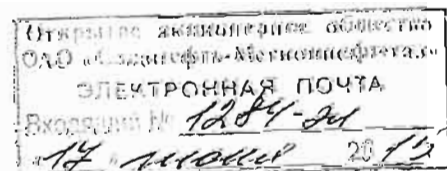 Открытое акционерное общество
ОАО «Славнефть-Мегионнефтегаз»
ЭЛЕКТРОННАЯ ПОЧТА
Входящий № 1284-эл
«17» июня 2013